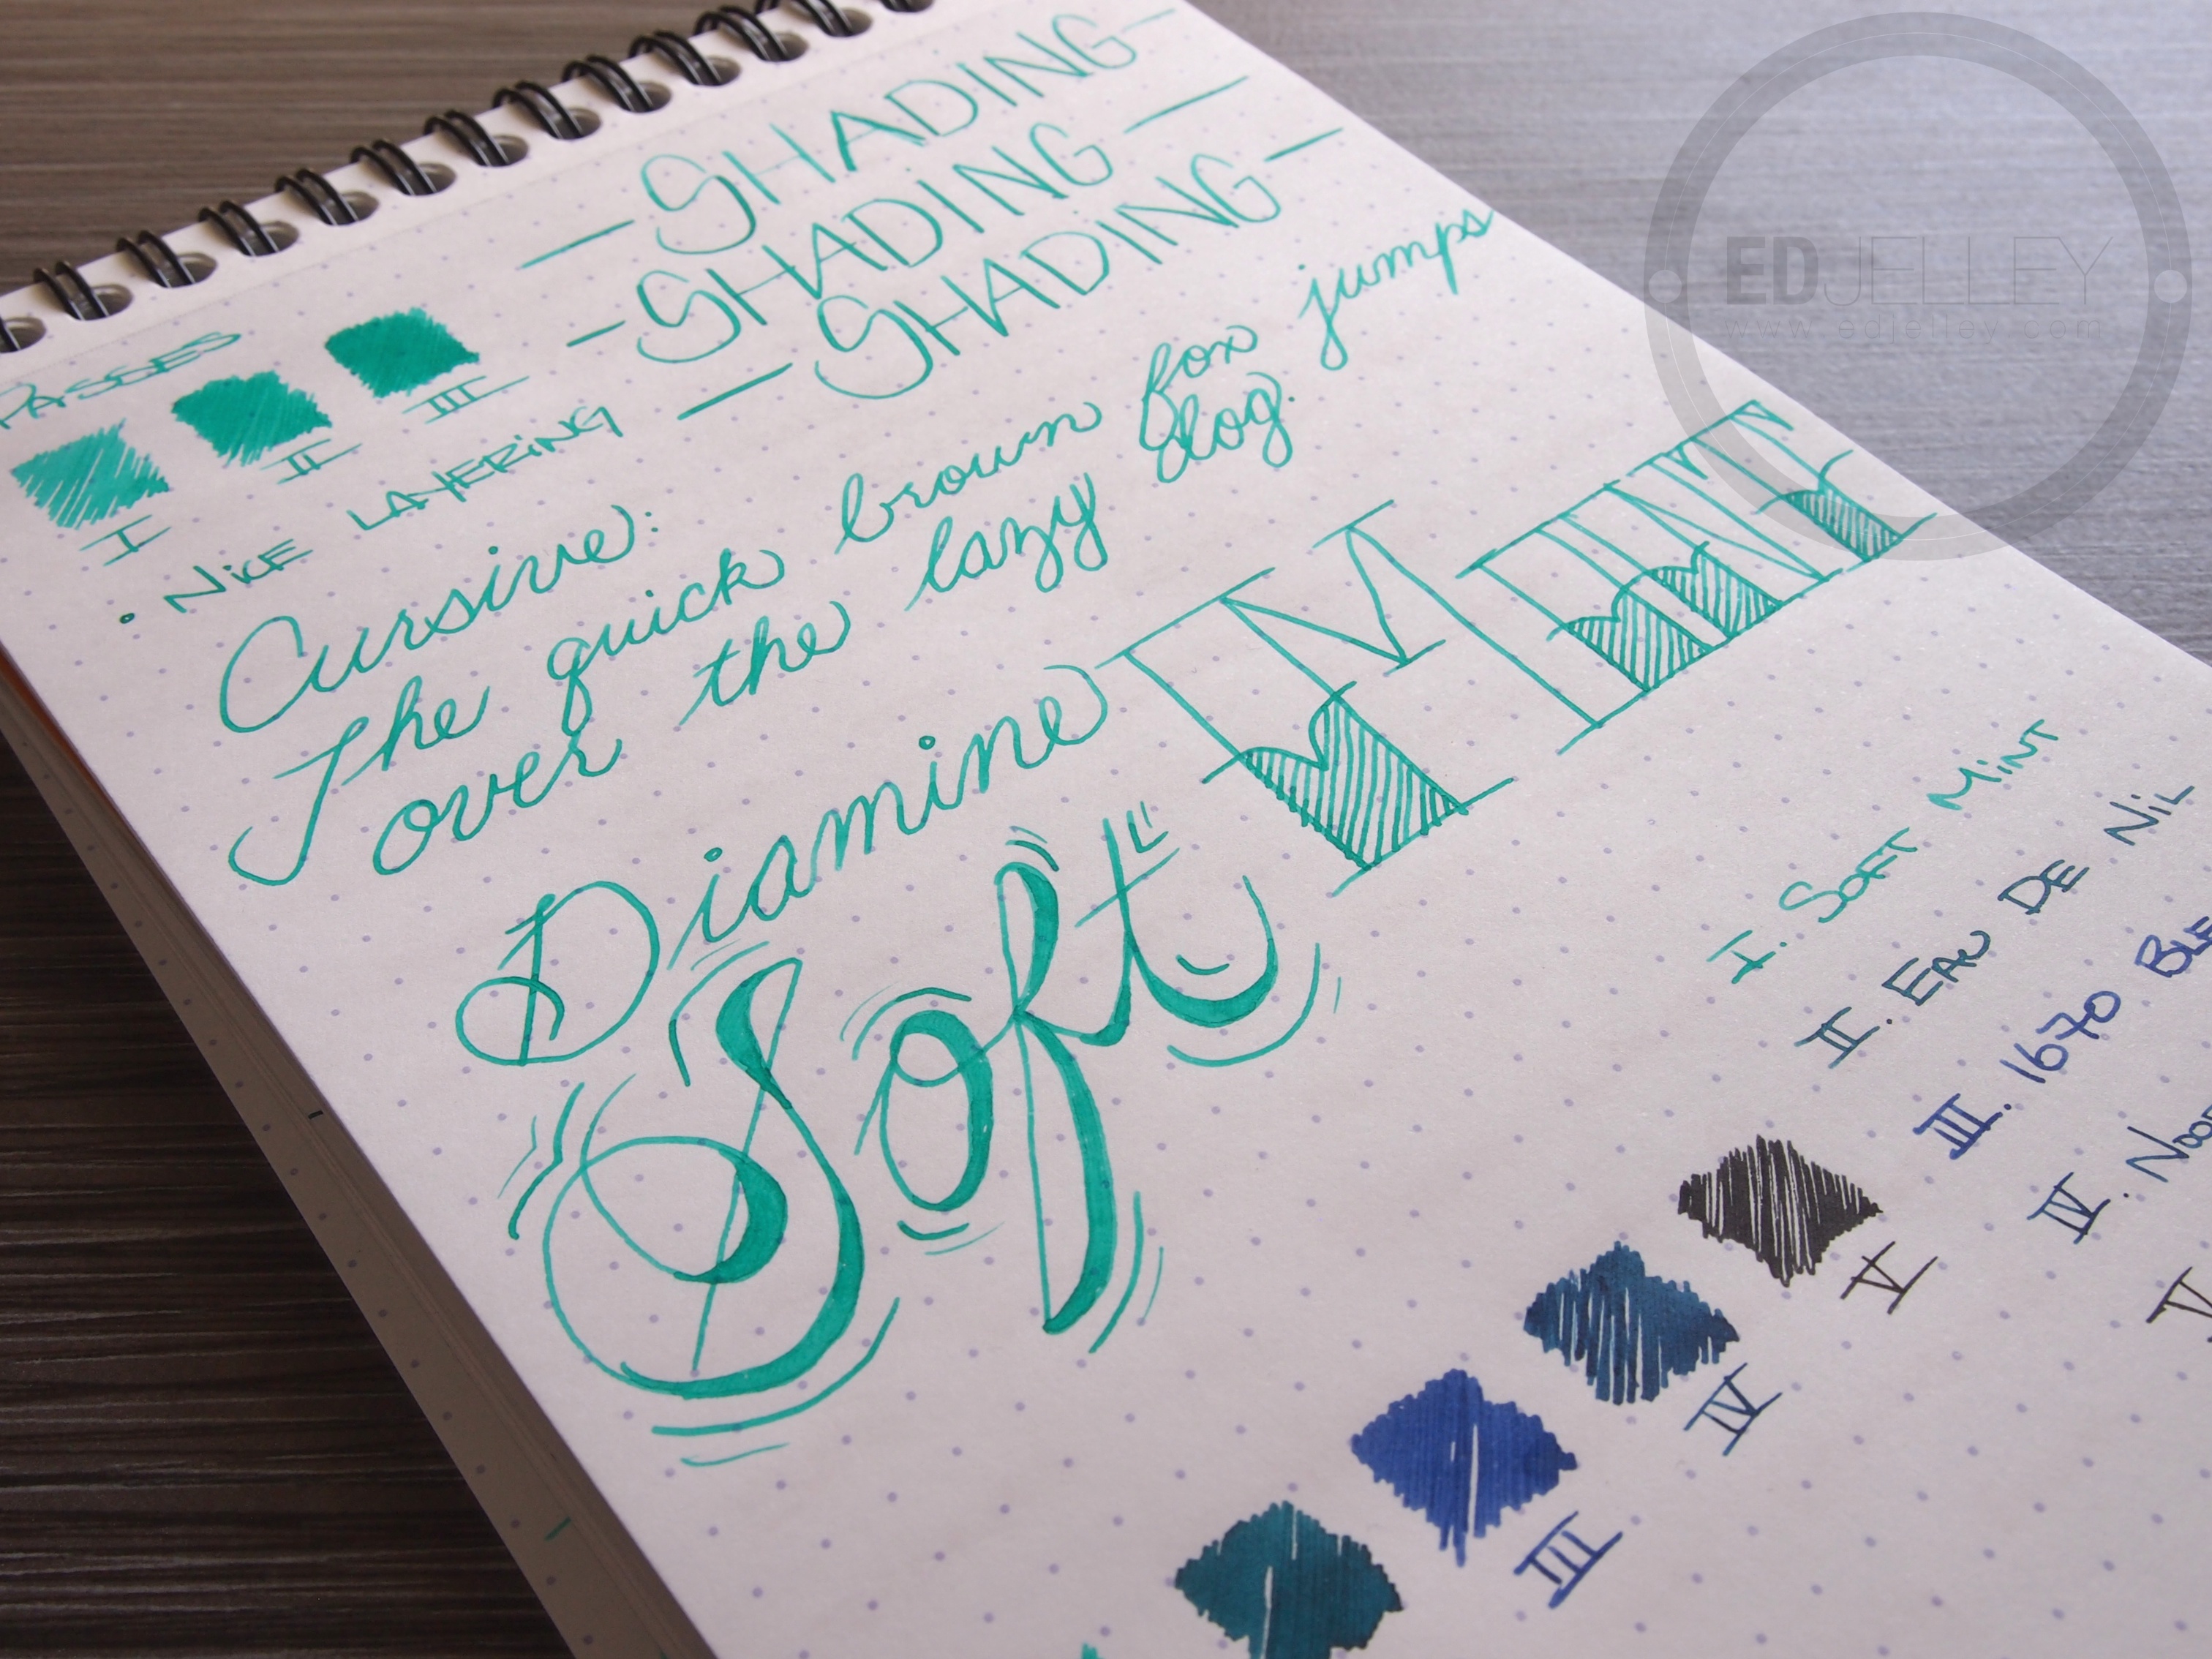 -SHADING-
-SHADING-
-SHADING-
PASSES
I
II
III
• NICE LAYERING
Cursive:
The quick brown fox jumps
over the lazy dog.
Diamine
Soft
MINT
I. SOFT MINT
II. EAU DE NIL
III. 1670
IV.
V
V
IV
III
EDJELLEY
www.edjelley.com